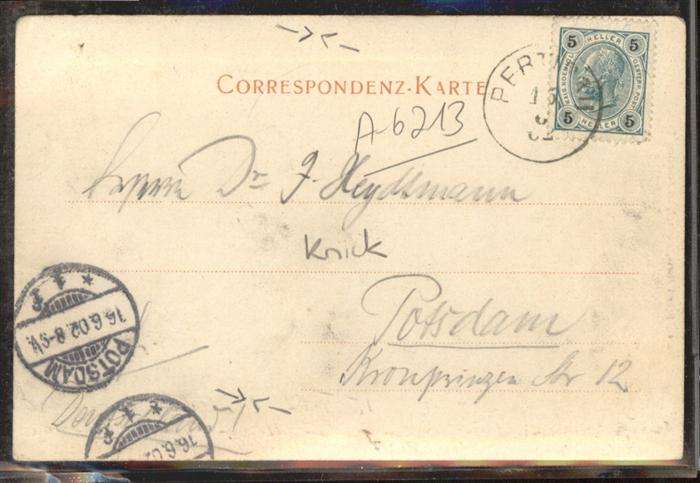 CORRESPONDENZ-KARTE
5 HELLER 5
5 HELLER 5
A 6213
Herrn Dr. J. Heydtmann
Knick
Potsdam
Kronprinzen Str 12
POTSDAM
16.6.02.8-9V.
16.6.02